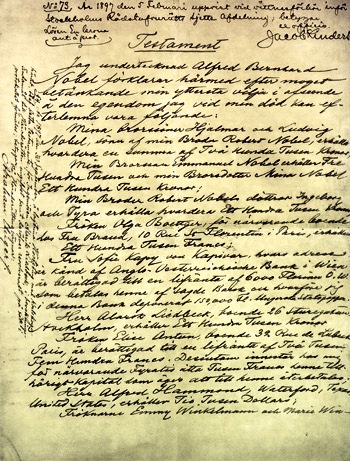 No 73. År 1897 den 5 Februari uppvist vid vittnesförhör inför
Stockholms Rådstufvurätts sjette Afdelning; betygar
Jacob
Testament
Jag undertecknad Alfred Bernhard
Nobel förklarar härmed efter moget
betänkande min yttersta vilja i afseende
å den egendom jag vid min död kan ef-
terlemna vara följande:
Mina Brorsöner Hjalmar och Ludvig
Nobel, söner af min Broder Robert Nobel, erhålla
hvardera en summa af Två Hundra Tusen Kronor
Min Brorson Emmanuel Nobel erhåller Tre
Hundra Tusen och min Brorsdotter Mina Nobel
Ett Hundra Tusen Kronor;
Min Broder Robert Nobels döttrar Ingeborg
och Tyra erhålla hvardera Ett Hundra Tusen
Fröken Olga Boettger, för närvarande boende
hos Fru Brand, 10 Rue St Florentin i Paris, erhåller
Ett Hundra Tusen Francs;
Fru Sofie Kapy von Kapivar, hvars adress
är känd af Anglo-Oesterreichische Bank i Wien
är berättigad till en lifränta af 6000 Florins Ö.W.
som betalas henne af sagde Bank och hvarför jag
i denna Bank deponerat 150,000 Fl. i Ungerska Statspapper.
Herr Alarik Liedbeck, boende 26 Sturegatan,
Stockholm, erhåller Ett Hundra Tusen Kronor;
Fröken Elise Antun, boende 32 Rue de Lubeck,
Paris, är berättigad till en lifränta af Två Tusen
Fem Hundra Francs. Dessutom innestår hos mig
för närvarande Fyratio åtta Tusen Francs henne till-
hörigt Kapital som
Herr Alfred Hammond, Waterford, Texas,
United States, erhåller Tio Tusen Dollars;
Fröknarne Emmy Winkelmann och Marie Win-